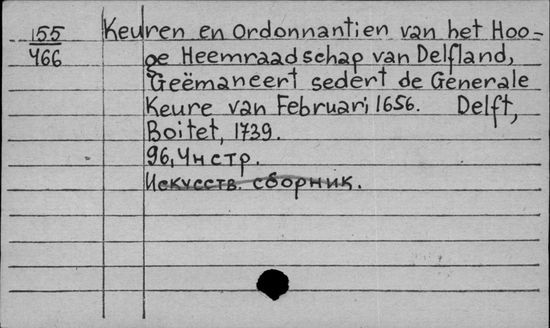 155 Keuren en Ordonnantien van het Hoo-
466 ge Heemraadschap van Delfland,
Geëmaneert sedert de Generale
Keure van Februari, 1656. Delft,
Boitet, 1739.
96, 4 н стр.
Искусств. сборник.